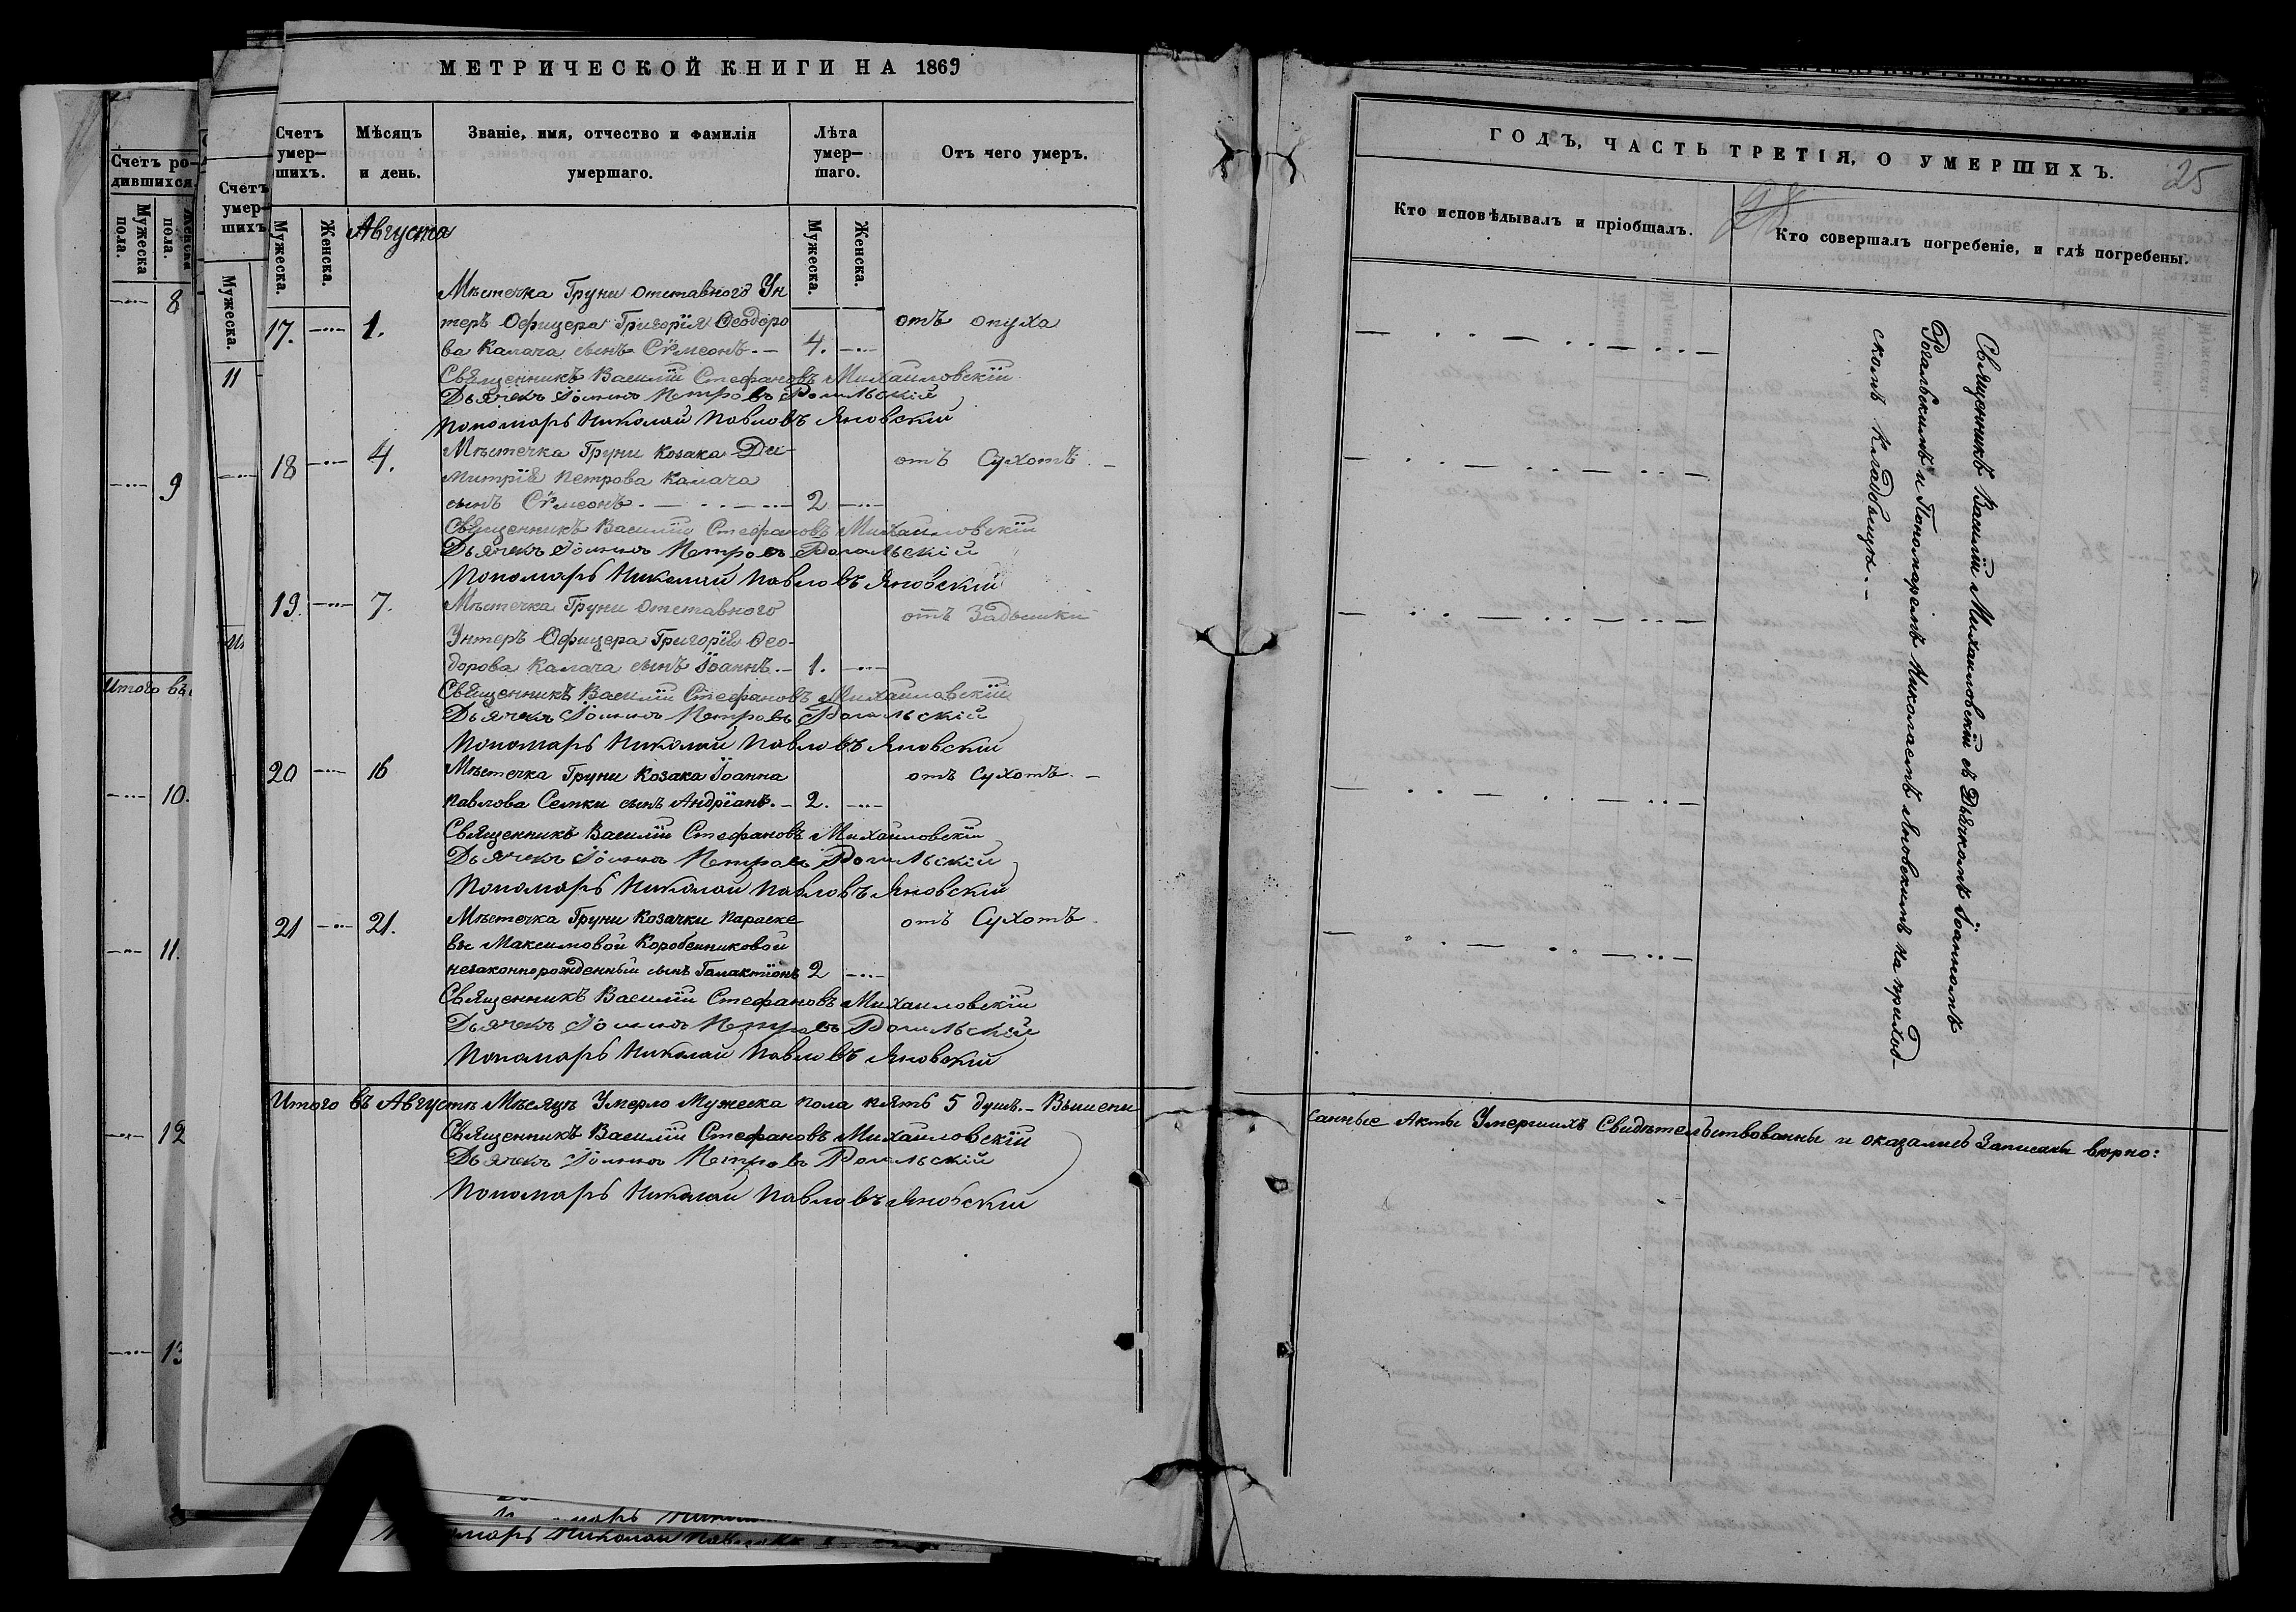 МЕТРИЧЕСКОЙ КНИГИ НА 1869
Счетъ умер—шихъ.
Мѣсяцъ и день.
Званіе, имя, отчество и фамилія умершаго.
Лѣта умер—шаго.
Отъ чего умеръ.
Мужеска.
Женска.
Августа
Мужеска.
Женска.
Мѣстечка Груни отставного Ун
17. 1. теръ Офицера Григорія Ѳеодоро отъ опуха
ва Калача сынъ Сѵмеонъ. — 4.
Священникъ Василій Стефановъ Михаиловскій
Дьячекъ Іоаннъ Петровъ Рогальскій
Пономарь Николай Павловъ Яновскій
18 4. Мѣстечка Груни Козака Ди- отъ Сухотъ. —
митрія Петрова Калача
сынъ Сѵмеонъ. — 2
Священникъ Василій Стефановъ Михаиловскій
Дьячекъ Іоаннъ Петровъ Рогальскій
Пономарь Николай Павловъ Яновскій
19. 7. Мѣстечка Груни отставного отъ Задышки
Унтеръ Офицера Григорія Ѳео-
дорова Калача сынъ Іоаннъ. — 1.
Священникъ Василій Стефановъ Михаиловскій
Дьячекъ Іоаннъ Петровъ Рогальскій
Пономарь Николай Павловъ Яновскій
20 16 Мѣстечка Груни Козака Іоанна отъ Сухотъ. —
Павлова Семки сынъ Андріанъ. — 2.
Священникъ Василій Стефановъ Михаиловскій
Дьячекъ Іоаннъ Петровъ Рогальскій
Пономарь Николай Павловъ Яновскій
21 21. Мѣстечка Груни Козачки Параске отъ Сухотъ.
вы Максимовой Коробейниковой
незаконнорожденный сынъ Галактіонъ 2
Священникъ Василій Стефановъ Михаиловскій
Дьячекъ Іоаннъ Петровъ Рогальскій
Пономарь Николай Павловъ Яновскій
Итого въ Августѣ Мѣсяцѣ Умерло Мужеска пола пять 5 душъ. — Вышепи
Священникъ Василій Стефановъ Михаиловскій
Дьячекъ Іоаннъ Петровъ Рогальскій
Пономарь Николай Павловъ Яновскій
ГОДЪ, ЧАСТЬ ТРЕТІЯ, О УМЕРШИХЪ.
25
Кто исповѣдывалъ и пріобщалъ.
Кто совершалъ погребеніе, и гдѣ погребены.
Священникъ Василій Михаиловскій съ Дьячкомъ Іоанномъ
Рогальскимъ и Пономаремъ Николаемъ Яновскимъ на приход-
скомъ кладбищѣ. —
санные Акты Умершихъ Свидѣтельствованны и оказались Записаны вѣрно:
Счетъ ро-дившихся.
Мужеска пола.
Женска пола.
8
9
Итого въ
10.
11.
12
13
Счетъ умер-шихъ
Мужеска.
11